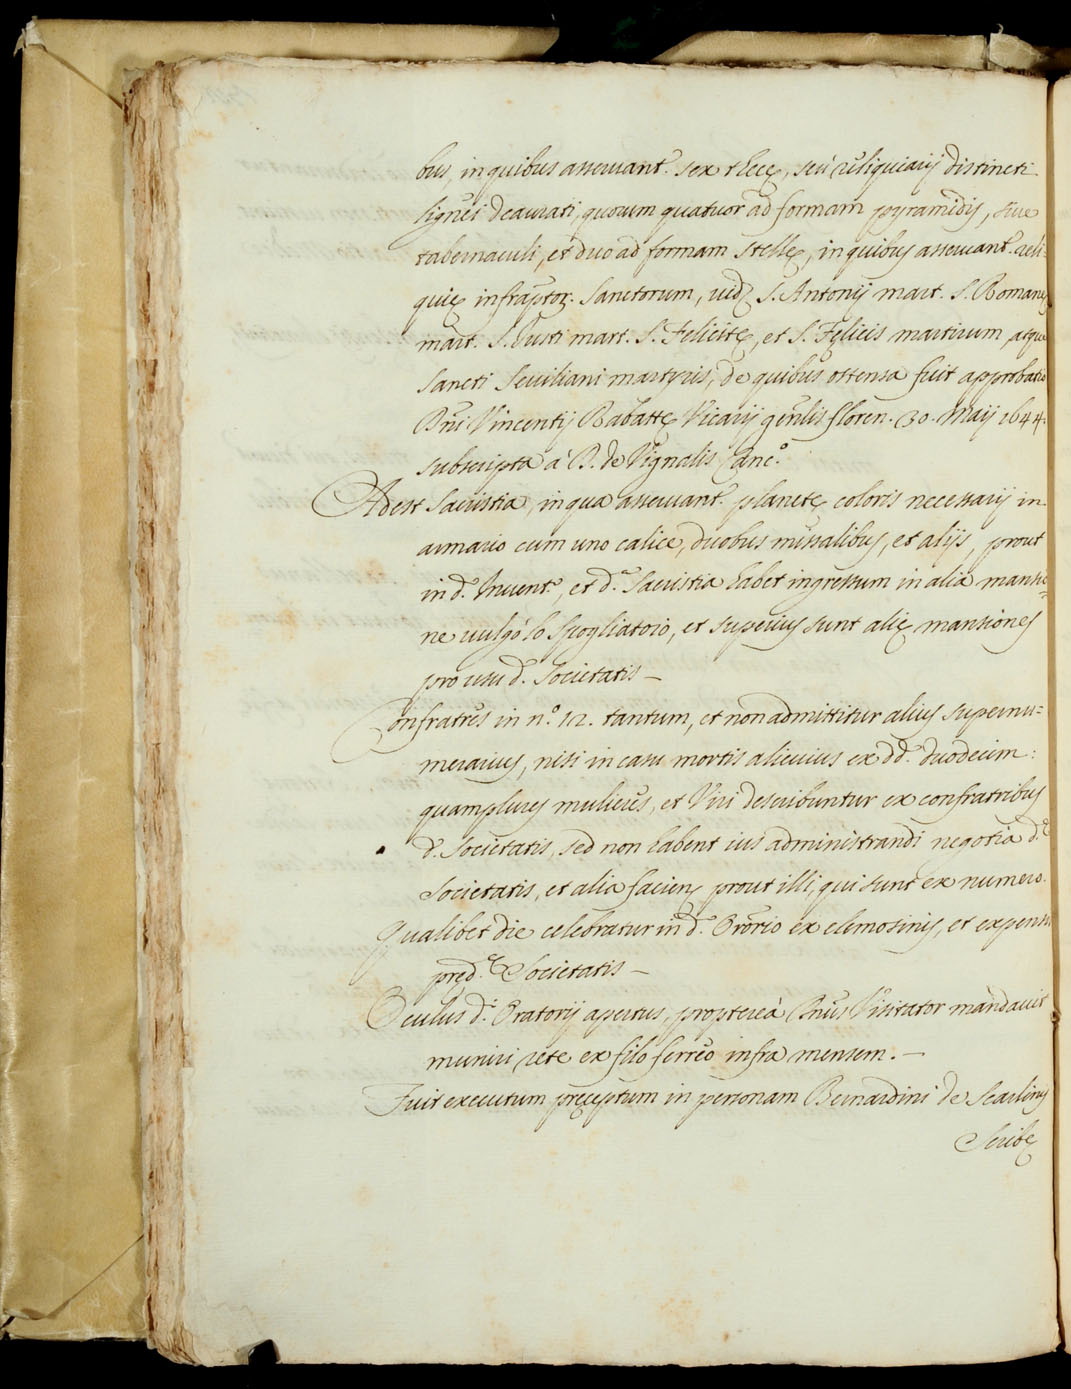 bus, in quibus asservant.r sex thecę, seù reliquiarij distincti
lignei deaurati, quorum quatuor ad formam pyramidis, sive
tabernaculi, et duo ad formam stellę, in quibus asservant.r reli-
quię infraptor. Sanctorum, vid.z S. Antonij mart. S. Romanę
mart. S. Justi mart. S. Felicitę, et S. Felicis martirum atque
Sancti Seviliani martyris, de quibus ostensa fuit approbatio
Dñi Vincentij Rabattę Vicarij gñlis Floren. 30. Maij 1644.
subscripta à B. de Vignalis Canc.o
Adest Sacristia, in qua asservant.r planetę coloris necessarij in
armario cum uno calice, duobus missalibus, et alijs, prout
in d.o Invent.o, et d.a Sacristia habet ingressum in alia mansio=
ne vulgò lo Spogliatoio, et superius sunt alię mansiones
pro usu d. Societatis —
Confratres in n.o 12. tantum, et non admittitur alius supernu=
merarius, nisi in casu mortis alicuius ex dd. duodecim:
quamplures mulieres, et Viri describuntur ex confratribus
d. Societatis, sed non habent ius administrandi negotia d.ę
Societatis, et alia facien. prout illi, qui sunt ex numero.
Qualibet die celebratur in d. Orõrio ex elemosinis, et expensis
pręd.ę Societatis —
Oculus d. Oratorij apertus, propterea Dñus Visitator mandavit
muniri rete ex filo ferreo infra mensem. —
Fuit executum pręceptum in personam Bernardini de Scarlinis
Scribę